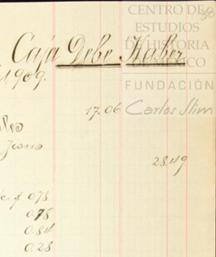 CENTRO DE
ESTUDIOS
DE HISTORIA
DE MÉXICO
Caja Debe Haber
1909.
FUNDACIÓN
17.06 Carlos Slim
28.49
0.78
0.78
0.84
0.28